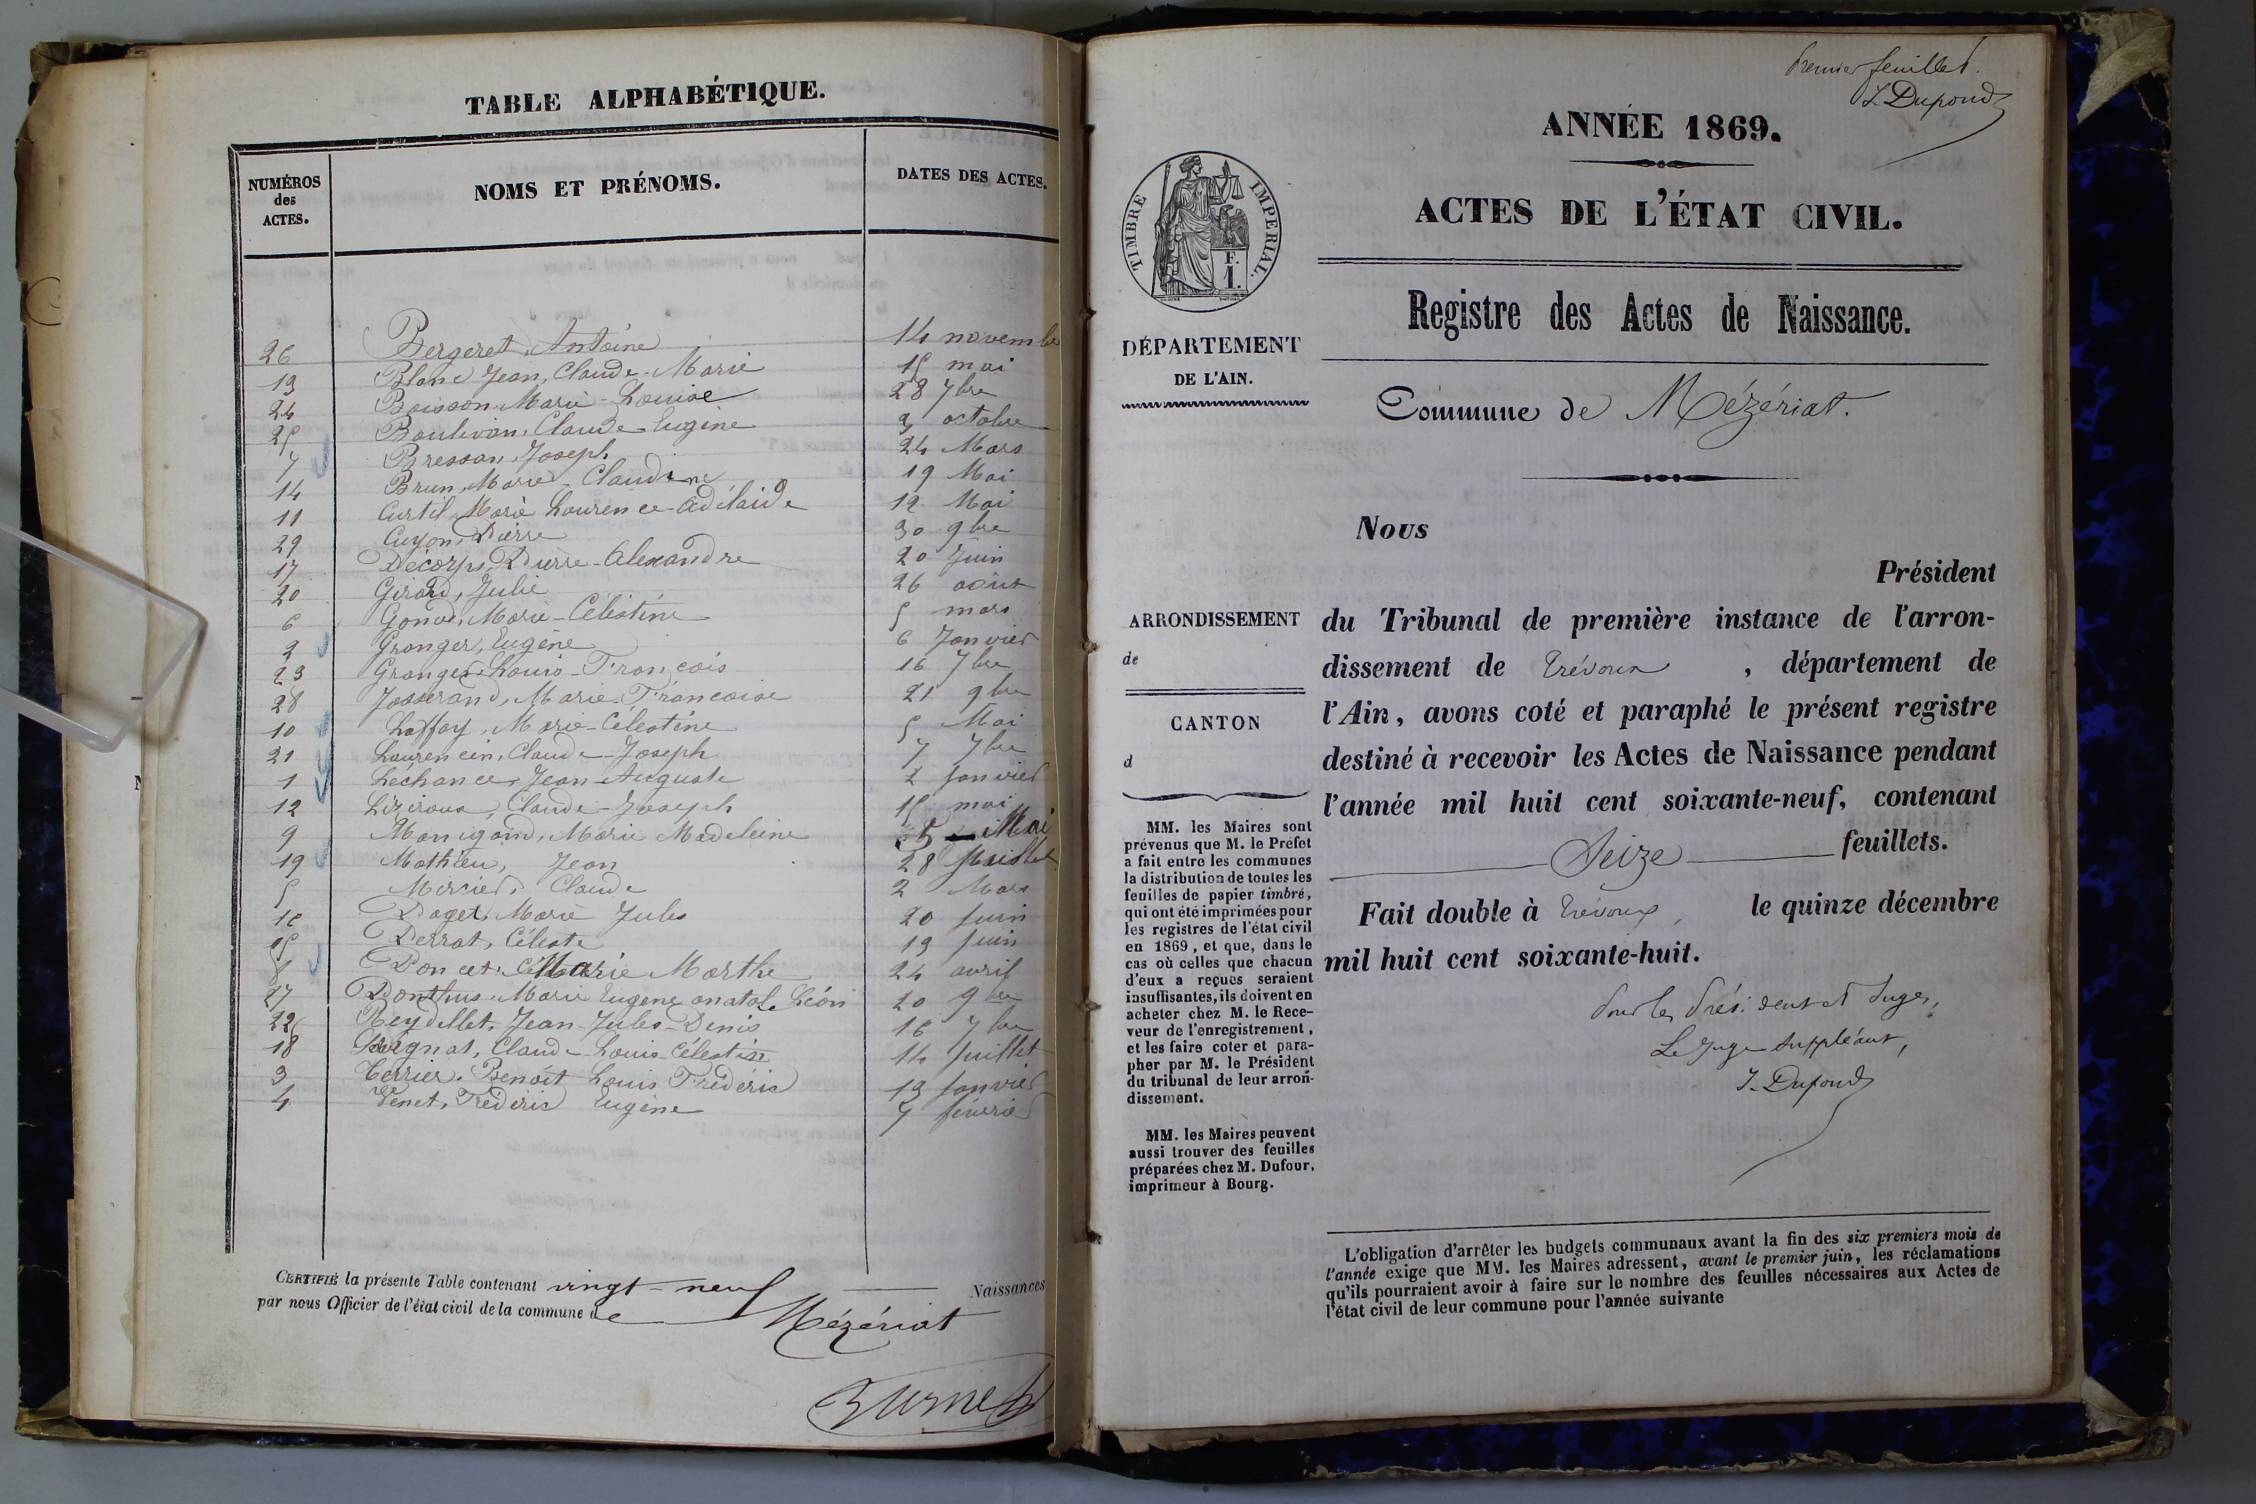 TABLE ALPHABÉTIQUE.
NUMÉROS des ACTES. NOMS ET PRÉNOMS. DATES DES ACTES.
26 Bergeret, Antoine 14 novembre
13 Blanc Jean, Claude-Marie 15 mai
24 Boisson Marie-Louise 28 7bre
25 Claude-Eugène 3 octobre
7 Bressan, Joseph 24 Mars
14 Brun, Marie-Claudine 19 Mai
11 Curtil, Marie Laurence-Adélaïde 12 Mai
29 Guyon, Pierre 30 9bre
17 Décorps, Pierre-Alexandre 20 Juin
20 Girard, Julie 26 août
6 Marie-Célestine 5 mars
2 Granger, Eugène 6 Janvier
23 Granger Louis-François 16 7bre
28 Josserand, Marie-Françoise 21 9bre
10 Laffay, Marie-Célestine 5 Mai
21 Laurencin, Claude-Joseph 7 7bre
1 Lechance, Jean-Auguste 2 Janvier
12 Claude-Joseph 15 mai
9 Marie Madeleine 5 Mai
19 Mathieu, Jean 28 Juillet
5 Mercier, Claude 2 Mars
16 Paget, Marie Jules 20 Juin
15 Perrat, Céleste 19 Juin
8 Poncet, Marie Marthe 24 avril
27 Ponthus, Marie Eugène anatole Léon 20 9bre
22 Reydellet, Jean-Jules-Denis 16 7bre
18 Claude-Louis-Célestin 14 Juillet
3 Terrier, Benoît Louis Frédéric 13 Janvier
4 Venet, Frédéric Eugène 7 février
CERTIFIÉ la présente Table contenant vingt-neuf Naissances
par nous Officier de l'état civil de la commune de Mézériat
Premier feuillet.
J. Dupond
ANNÉE 1869.
TIMBRE IMPERIAL.
F.
1.
ACTES DE L'ÉTAT CIVIL.
Registre des Actes de Naissance.
DÉPARTEMENT
DE L'AIN.
Commune de Mézériat.
Nous
Président
ARRONDISSEMENT
de
CANTON
d
du Tribunal de première instance de l'arron-
dissement de Trévoux, département de
l'Ain, avons coté et paraphé le présent registre
destiné à recevoir les Actes de Naissance pendant
l'année mil huit cent soixante-neuf, contenant
Seize feuillets.
Fait double à Trévoux, le quinze décembre
mil huit cent soixante-huit.
Pour les Président et Juges,
Le Juge Suppléant,
J. Dupond
MM. les Maires sont
prévenus que M. le Préfet
a fait entre les communes
la distribution de toutes les
feuilles de papier timbré,
qui ont été imprimées pour
les registres de l'état civil
en 1869, et que, dans le
cas où celles que chacun
d'eux a reçues seraient
insuffisantes, ils doivent en
acheter chez M. le Rece-
veur de l'enregistrement,
et les faire coter et para-
pher par M. le Président
du tribunal de leur arron-
dissement.
MM. les Maires peuvent
aussi trouver des feuilles
préparées chez M. Dufour,
imprimeur à Bourg.
L'obligation d'arrêter les budgets communaux avant la fin des six premiers mois de
l'année exige que MM. les Maires adressent, avant le premier juin, les réclamations
qu'ils pourraient avoir à faire sur le nombre des feuilles nécessaires aux Actes de
l'état civil de leur commune pour l'année suivante